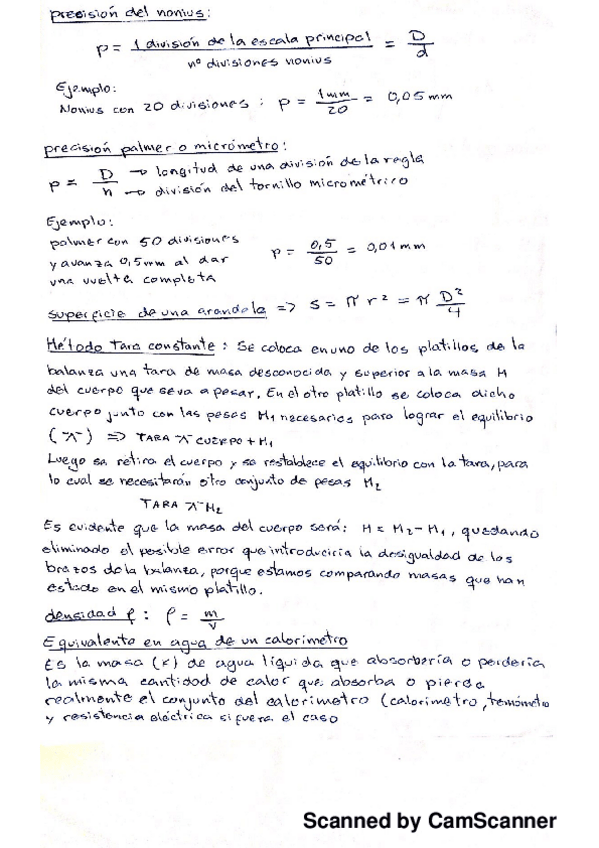 precisión del nonius:
p = 1 división de la escala principal / nº divisiones nonius = D/d
Ejemplo:
Nonius con 20 divisiones : p = 1mm/20 = 0,05 mm
precisión palmer o micrómetro:
p = D/n → longitud de una división de la regla
→ división del tornillo micrométrico
Ejemplo:
palmer con 50 divisiones
y avanza 0,5mm al dar
una vuelta completa
p = 0,5/50 = 0,01 mm
superficie de una arandela => s = π r² = π D²/4
Método Tara constante : Se coloca en uno de los platillos de la
balanza una tara de masa desconocida y superior a la masa M
del cuerpo que se va a pesar. En el otro platillo se coloca dicho
cuerpo junto con las pesas M₁ necesarias para lograr el equilibrio
=> TARA CUERPO + M₁
Luego se retira el cuerpo y se restablece el equilibrio con la tara, para
lo cual se necesitarán otro conjunto de pesas M₂
TARA M₂
Es evidente que la masa del cuerpo será: M = M₂ - M₁, quedando
eliminado el posible error que introduciría la desigualdad de los
brazos de la balanza, porque estamos comparando masas que han
estado en el mismo platillo.
densidad ρ : ρ = m/v
Equivalente en agua de un calorímetro
Es la masa (K) de agua líquida que absorbería o perdería
la misma cantidad de calor que absorba o pierda
realmente el conjunto del calorímetro (calorímetro, termómetro
y resistencia eléctrica si fuera el caso
Scanned by CamScanner